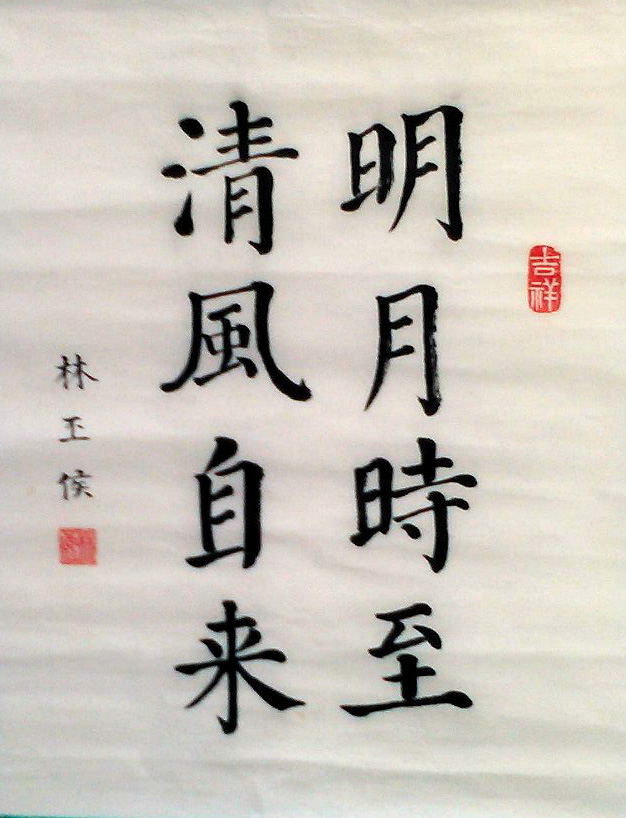 吉祥
明月時至
清風自来
林玉侯